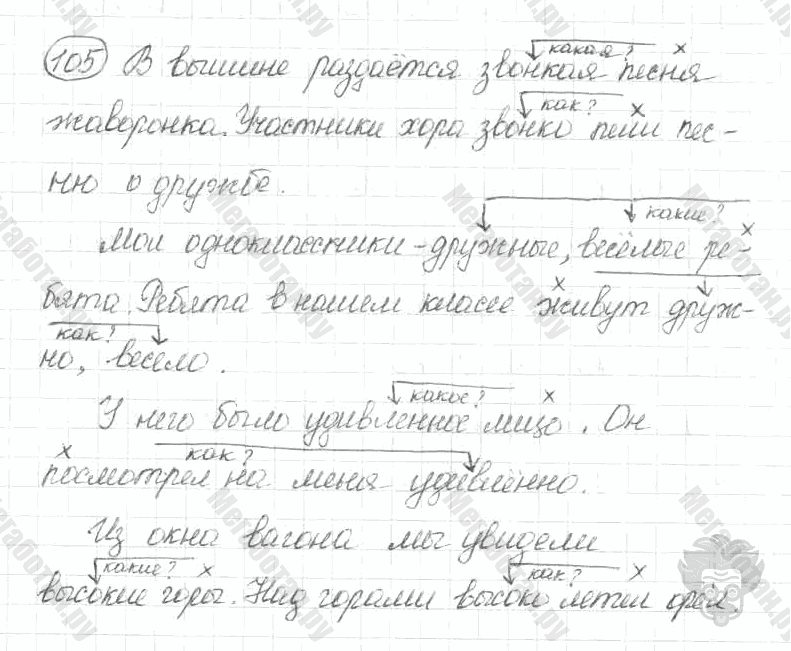 какая? х
105 В вышине раздаётся звонкая песня
как? х
жаворонка. Участники хора звонко пели пес-
ню о дружбе.
какие? х
Мои одноклассники - дружные, весёлые ре-
х
бята. Ребята в нашем классе живут друж-
как?
но, весело.
какое? х
У него было удивленное лицо. Он
х как?
посмотрел на меня удивлённо.
Из окна вагона мы увидели
какие? х как? х
высокие горы. Над горами высоко летел орёл.
Мегаботан.ру